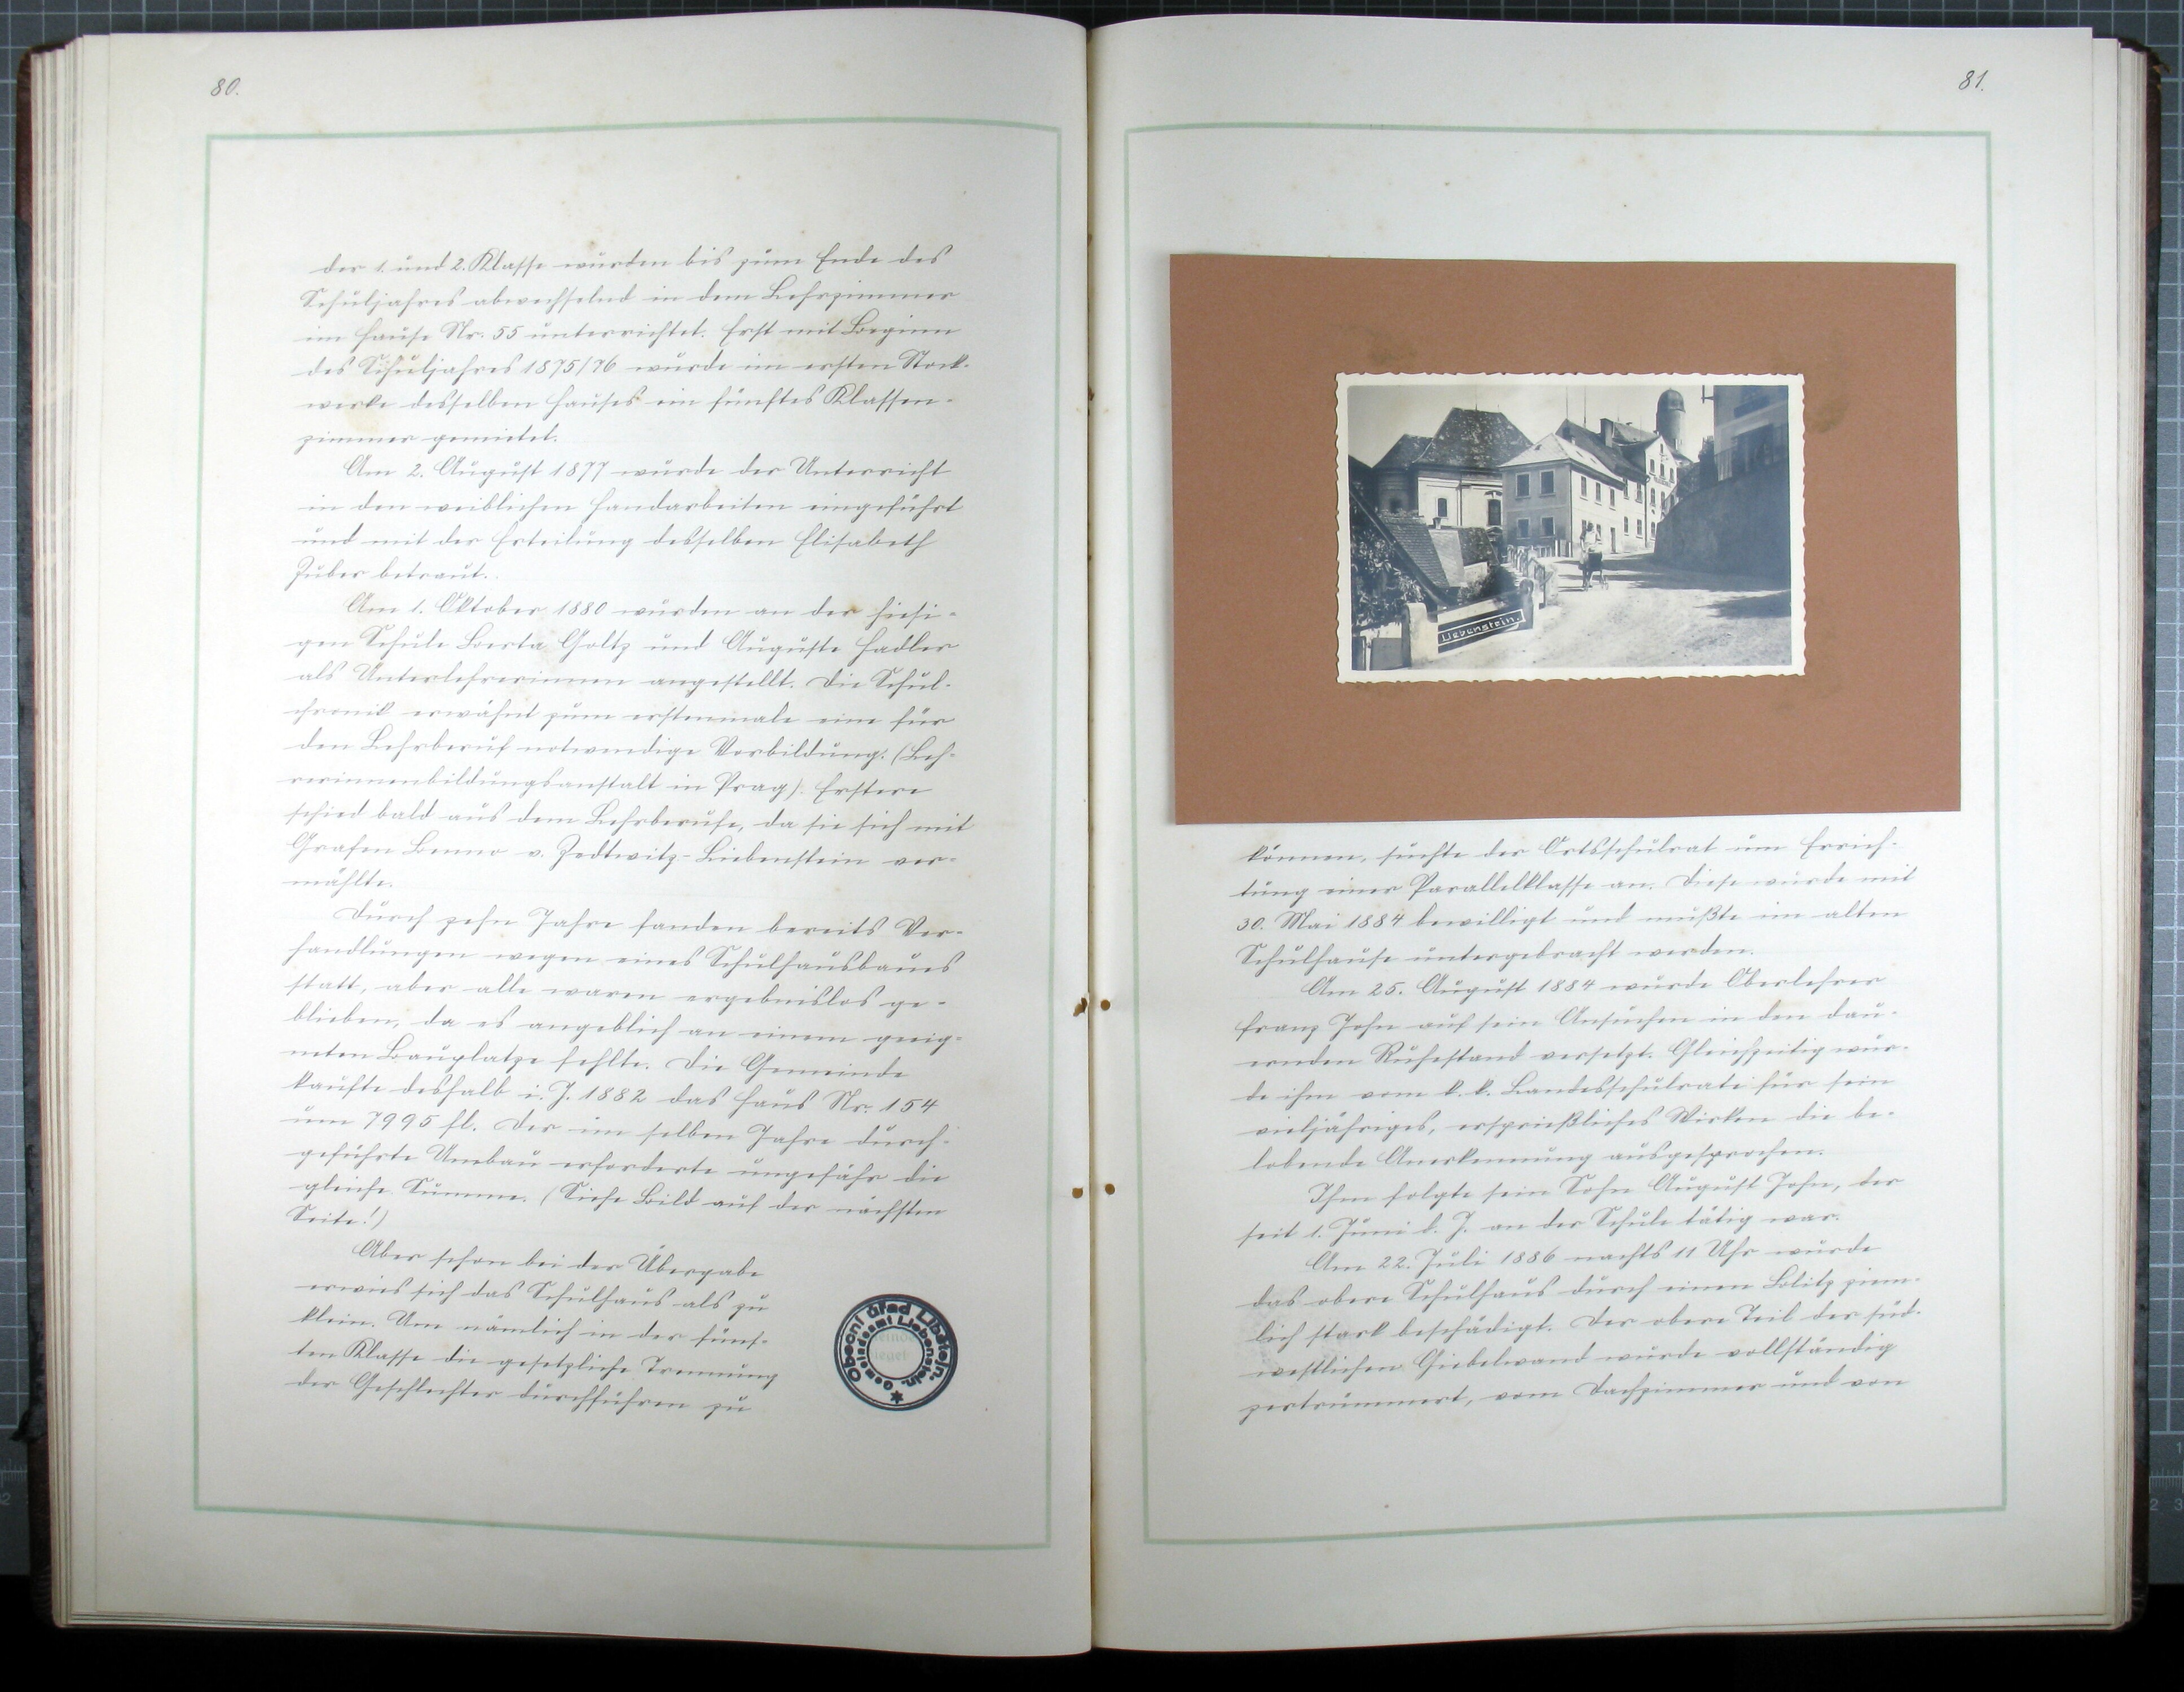 80.
der 1. und 2. Klasse wurden bis zum Ende des
Schuljahres abwechselnd in dem Lehrzimmer
im Hause Nr. 55 unterrichtet. Erst mit Beginn
des Schuljahres 1875/76 wurde im ersten Stock-
werke desselben Hauses ein fünftes Klassen-
zimmer gemietet.
Am 2. August 1877 wurde der Unterricht
in den weiblichen Handarbeiten eingeführt
und mit der Erteilung desselben Elisabeth
Huber betraut.
Am 1. Oktober 1880 wurden an der hiesi-
gen Schule Berta Goltz und Auguste Hadler
als Unterlehrerinnen angestellt. Die Schul-
chronik erwähnt zum erstenmale eine für
den Lehrberuf notwendige Vorbildung. (Leh-
rerinnenbildungsanstalt in Prag). Erstere
schied bald aus dem Lehrberufe, da sie sich mit
Grafen Benno v. Zedtwitz-Liebenstein ver-
mählte.
Durch zehn Jahre fanden bereits Ver-
handlungen wegen eines Schulhausbaues
statt, aber alle waren ergebnislos ge-
blieben, da es angeblich an einem geeig-
neten Bauplatze fehlte. Die Gemeinde
kaufte deshalb i. J. 1882 das Haus Nr. 154
um 7995 fl. Der im selben Jahre durch-
geführte Umbau erforderte ungefähr die
gleiche Summe. (Siehe Bild auf der nächsten
Seite!)
Aber schon bei der Übergabe
erwies sich das Schulhaus als zu
klein. Um nämlich in der fünf-
ten Klasse die gesetzliche Trennung
der Geschlechter durchführen zu
Obecní úřad Libštein.
Gemeindeamt Liebenstein.
81.
Liebenstein.
können, suchte der Ortsschulrat um Errich-
tung einer Parallelklasse an. Diese wurde mit
30. Mai 1884 bewilligt und mußte im alten
Schulhause untergebracht werden.
Am 25. August 1884 wurde Oberlehrer
Franz John auf sein Ansuchen in den dau-
ernden Ruhestand versetzt. Gleichzeitig wur-
de ihm vom k. k. Landesschulrate für sein
vieljähriges, ersprießliches Wirken die be-
lobende Anerkennung ausgesprochen.
Ihm folgte sein Sohn August John, der
seit 1. Juni l. J. an der Schule tätig war.
Am 22. Juli 1886 nachts 11 Uhr wurde
das obere Schulhaus durch einen Blitz ziem-
lich stark beschädigt. Der obere Teil der süd-
westlichen Giebelwand wurde vollständig
zertrümmert, vom Dachzimmer und von